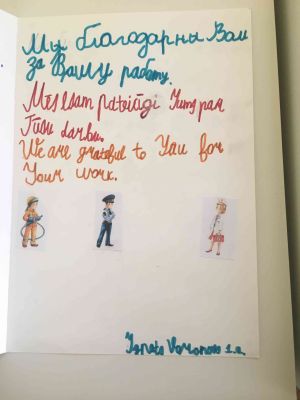 Мы благодарны Вам
за Вашу работу.
Mēs esam pateicīgi Jums par
Jūsu darbu.
We are grateful to You for
Your work.
1.a.